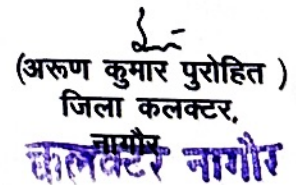 (अरूण कुमार पुरोहित )
जिला कलक्टर,
नागौर
कलक्टर नागौर